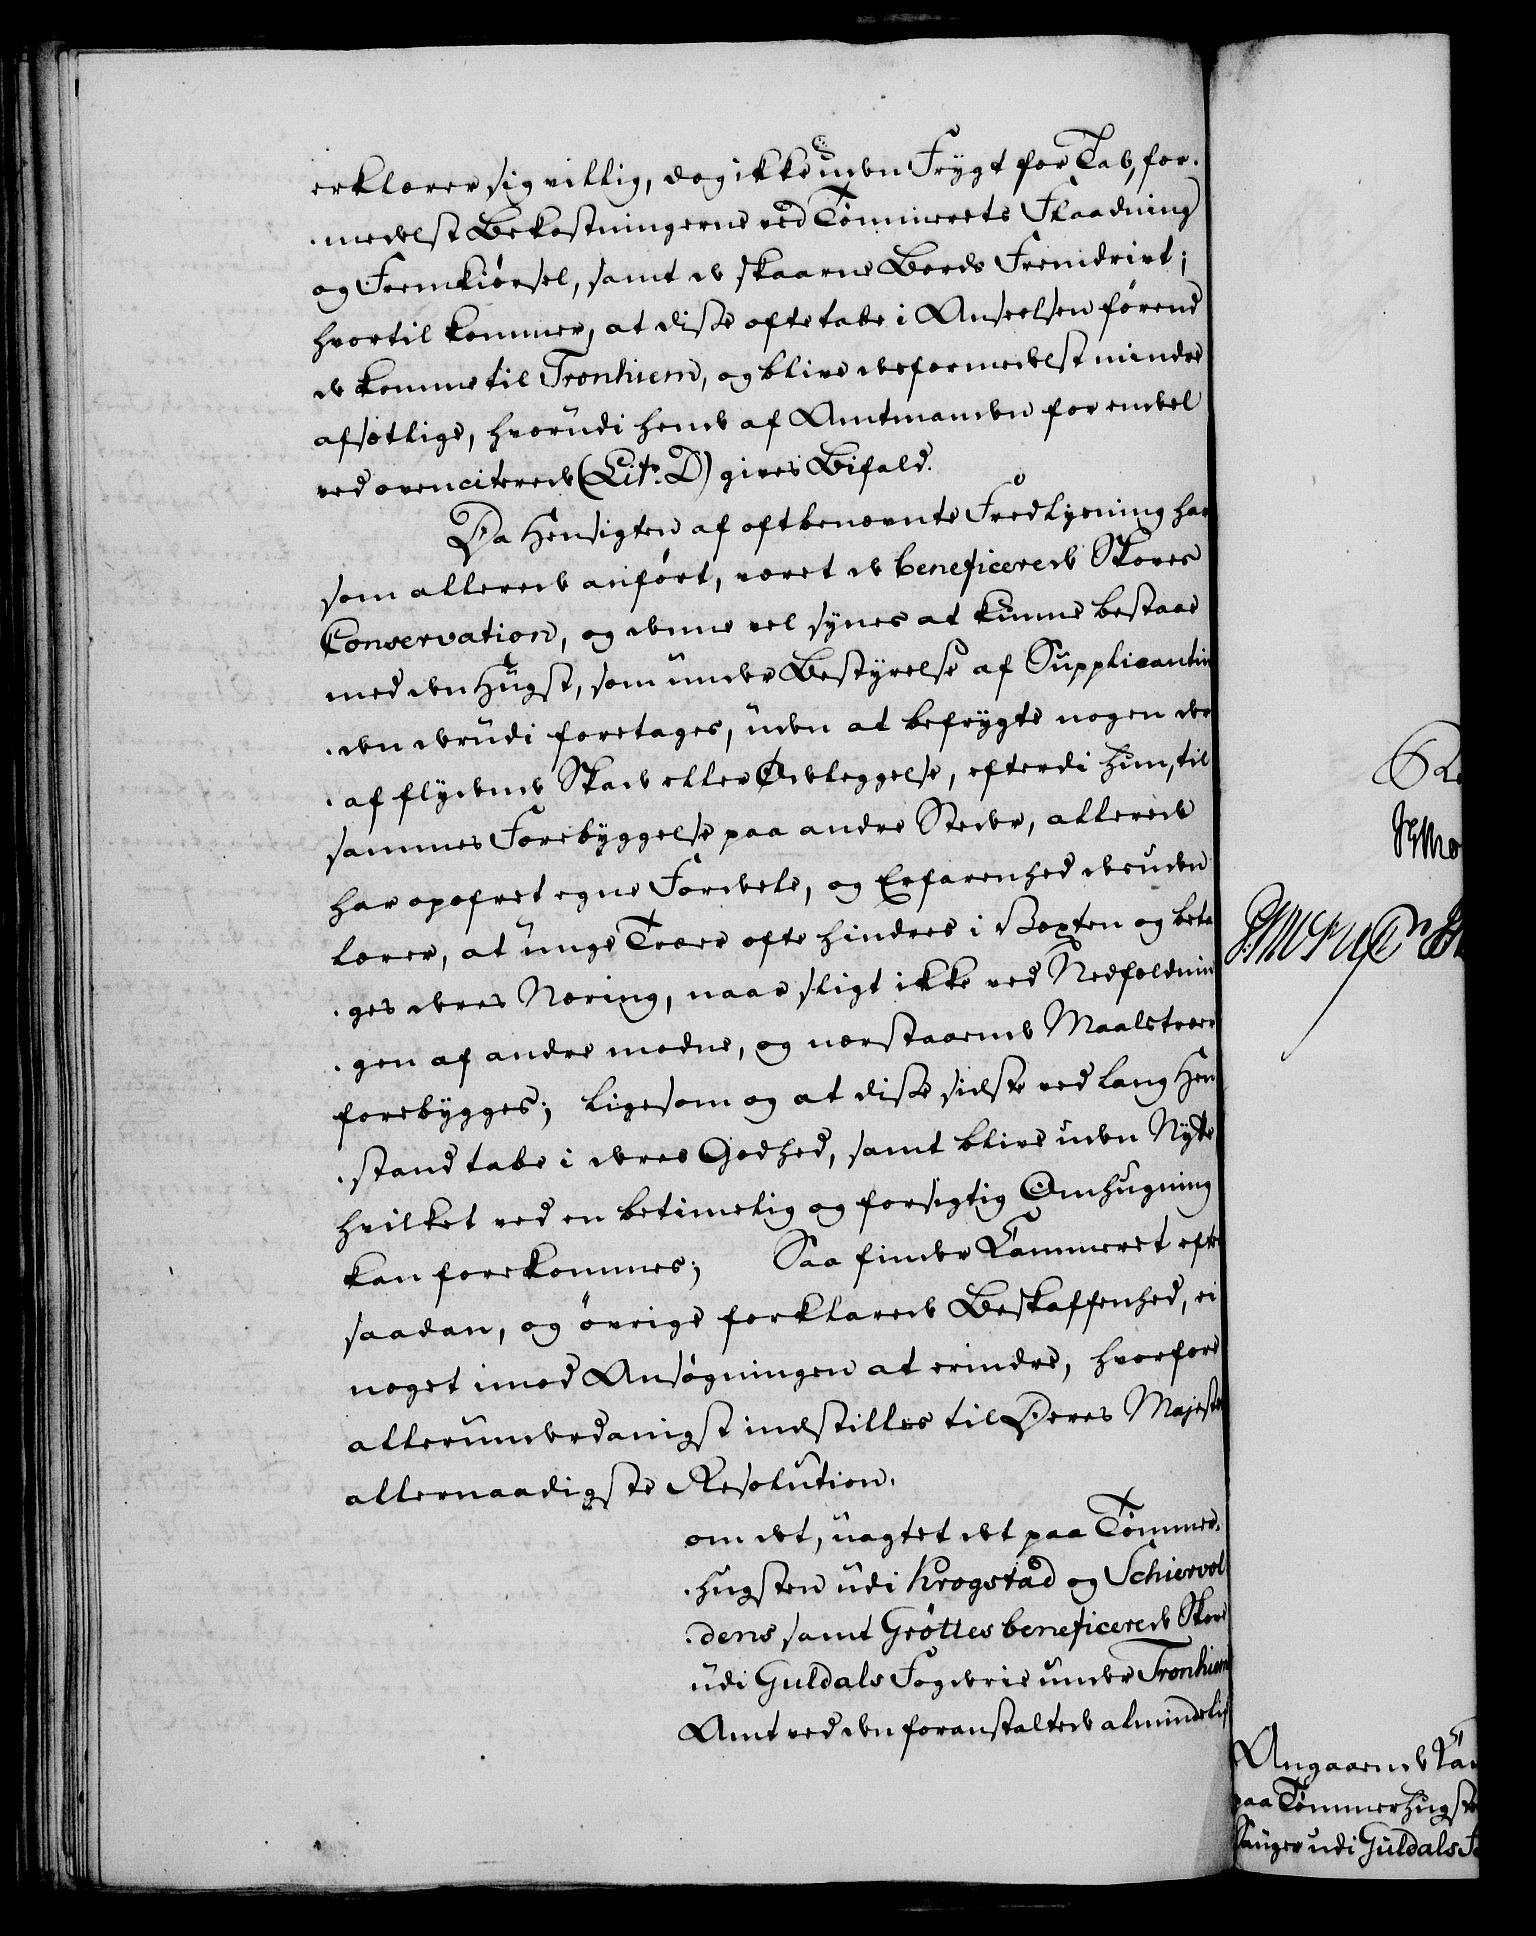 erklærer sig villig, dog ikke uden Frygt for Tab, for-
-medelst Bekostningerne ved Tømmerets Flaadning
og Fremkiørsel, samt de skaarne Bords Fremdrivt;
hvortil kommer, at disse ofte tabe i Anseelsen førend
de komme til Tronhiem, og blive deformedelst mindre
afsætlige, hvorudi hende af Amtmanden for endeel
ved ovenciterede (Litr. D) gives Bifald.
Da Hensigten af oftbenævnte Fredlysning har
som allerede anført, været de beneficerede Skoves
Conservation, og denne vel synes at kunne bestaae
med den Hugst, som under Bestyrelse af Supplicantin-
-den derudi foretages, uden at befrygte nogen der
-af flydende Skade eller Ødeleggelse, efterdi hun, til
sammes Forebyggelse paa andre Steder, allerede
har opofret egne Fordele, og Erfarenhed desuden
lærer, at unge Træer ofte hindres i Vexten og beta
-ges deres Næring, naar sligt ikke ved Nedfældnin
-gen af andre modne, og nærstaaende Maalstræer
forebygges; ligesom og at disse sidste ved lang Hen
-stand tabe i deres Godhed, samt blive uden Nytte
hvilket ved en betimelig og forsigtig Omhugning
kan forekommes; Saa finder Kammeret efter
saadan, og øvrige forklarede Beskaffenhed, ei
noget imod Ansøgningen at erindre, hvorfore
allerunderdanigst indstilles til Deres Majests
allernaadigste Resolution.
om det, uagtet det paa Tømmer-
-hugsten udi Krogstad og Schiervol
-dens samt Grøttes beneficerede Skove
udi Guldals Fogderie under Tronhiems
Amt ved den foranstaltede almindelig
Angaaende
paa Tømmerhugste
udi Guldals